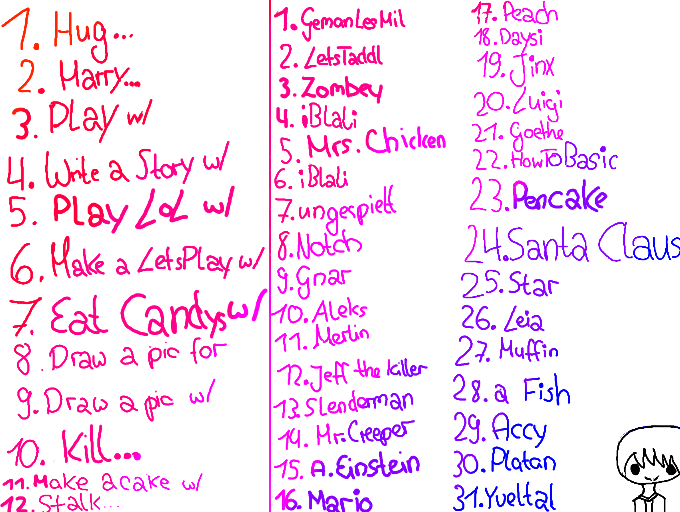 1. Hug...
2. Marry...
3. Play w/
4. Write a Story w/
5. Play LoL w/
6. Make a LetsPlay w/
7. Eat Candys w/
8. Draw a pic for
9. Draw a pic w/
10. Kill...
11. Make a cake w/
12. Stalk...
1. GemanLesMil
2. LetsTaddl
3. Zombey
4. iBlali
5. Mrs. Chicken
6. iBlali
7. ungespielt
8. Notch
9. Gnar
10. Aleks
11. Merlin
12. Jeff the killer
13. Slenderman
14. Mr. Creeper
15. A. Einstein
16. Mario
17. Peach
18. Daysi
19. Jinx
20. Luigi
21. Goethe
22. HowToBasic
23. Pencake
24. Santa Claus
25. Star
26. Leia
27. Muffin
28. a Fish
29. Accy
30. Platan
31. Yveltal